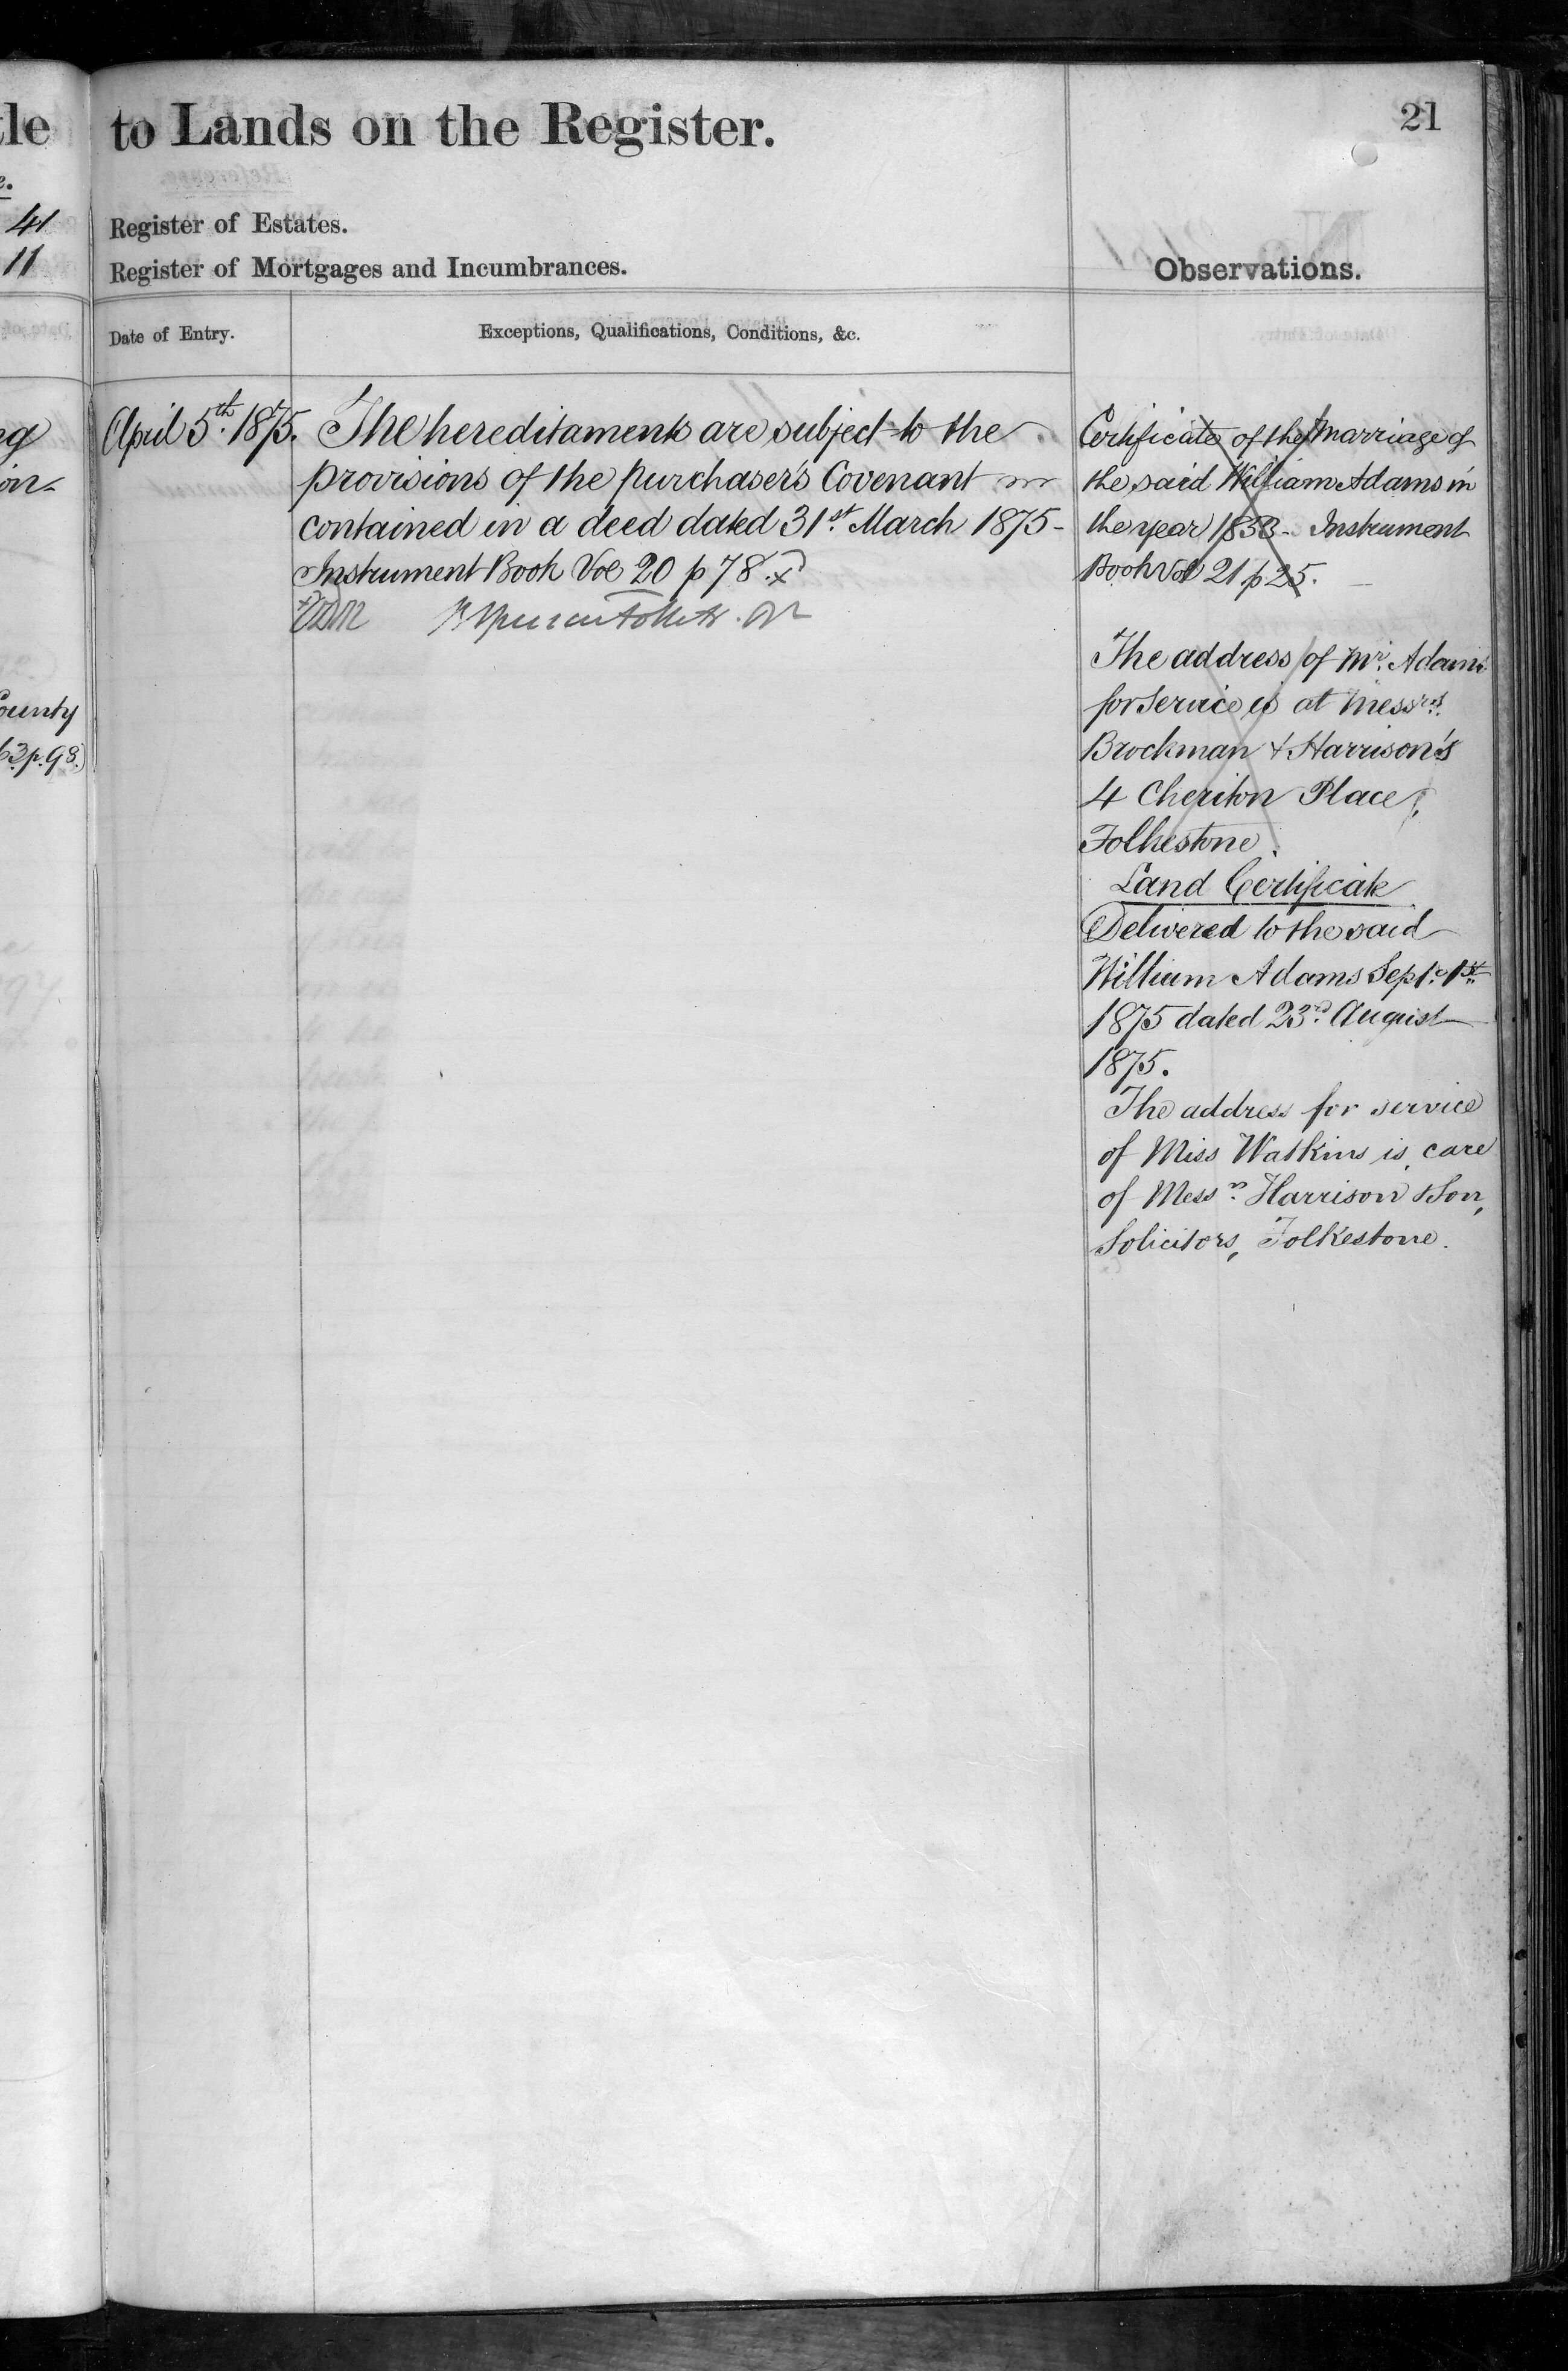 tle
e.
41
11
ng
on-
County
63 p. 98.)
to Lands on the Register.
21
Register of Estates.
Register of Mortgages and Incumbrances.
Observations.
Date of Entry.
Exceptions, Qualifications, Conditions, &c.
April 5th. 1875.
The hereditaments are subject to the
provisions of the purchaser's Covenant
contained in a deed dated 31st. March 1875-
Instrument Book Vol 20 p 78. x
Certificate of the Marriage of
the said William Adams in
the year 1833- Instrument
Book Vol 21 p 25.
The address of Mr. Adams
for service is at Messrs.
Brockman & Harrison's
4 Cheriton Place,
Folkestone.
Land Certificate
Delivered to the said
William Adams Sept. 1st
1875 dated 23rd. August
1875.
The address for service
of Miss Watkins is, care
of Messrs. Harrison & Son,
Solicitors, Folkestone.